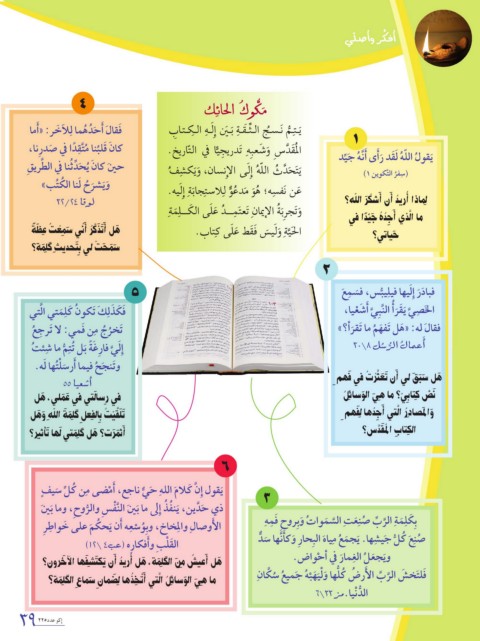 أفكّر وأصلي
مَكُّوكُ الحَائِك
يَتِمُّ نَسجُ الثِّقَـةِ بَيْنَ إلَـهِ الـكِـتابِ
المُقَدَّسِ وَشَعبِهِ تَدريجِيًّا في التّاريخ.
يَتَحَدَّثُ اللّهُ إلى الإنسان، وَيَكشِفُ
عَن نَفسِه؛ هُوَ مَدعُوٌّ لِلاستِجابَةِ إلَيه.
وَتَجرِبَةُ الإيمانِ تَعتَمِـدُ عَلَى الكَــلِمَةِ
الحَيَّةِ وَلَيسَ فَقَط عَلَى كِتاب.
١
يَقولُ اللّهُ لَقَد رَأى أَنَّهُ جَيِّد
(سِفرُ التّكوين ١)
لِماذا أُريدُ أَن أَشكُرَ اللّه؟
ما الّذي أَجِدُهُ جَيِّدًا في
حَياتي؟
٢
فبادَرَ إلَيها فيلِيبُّس، فسَمِعَ
الخَصِيَّ يَقرَأُ النَّبِيَّ أَشَعْيا،
فقالَ له: «هَل تَفهَمُ ما تَقرَأ؟»
أعمالُ الرُّسُل ٢٠/٨
هَل سَبَقَ لي أَن تَعَثَّرتُ في فَهمِ
نَصٍّ كِتابِيّ؟ ما هِيَ الوَسائِلُ
وَالمَصادِرُ الّتي أَجِدُها لِفَهمِ
الكِتابِ المُقَدَّس؟
٣
بِكَلِمَةِ الرَّبِّ صُنِعَتِ السَّمَواتُ وَبِروحِ فَمِهِ
صُنِعَ كُلُّ جَيشِها. يَجمَعُ مِياهَ البِحارِ وَكَأَنَّها سَدٌّ
وَيَجعَلُ الغِمارَ في أَحْواض.
فَلتَخشَ الرَّبَّ الأَرضُ كُلُّها وَلْيَهَبْهُ جَميعُ سُكَّانِ
الدُّنْيا. مز ٦/٢٢
٤
فَقالَ أَحَدُهُما لِلآخَر: «أَما
كانَ قَلبُنا مُتَّقِدًا في صَدرِنا،
حينَ كانَ يُحَدِّثُنا في الطَّريقِ
وَيَشرَحُ لَنا الكُتُب»
لوقا ٢٢/٢٤
هَل أَتَذَكَّرُ أَنّي سَمِعتُ عِظَةً
سَمَحَت لي بِتَحديثِ كَلِمَة؟
٥
فَكَذلِكَ تَكونُ كَلِمَتي الَّتي
تَخرُجُ مِن فَمي: لا تَرجِعُ
إلَيَّ فارِغَةً بَل تُتِمُّ ما شِئتُ
وتَنجَحُ فيما أَرسَلْتُها لَه.
أَشَعيا ٥٥
في رِسالَتي في عَمَلي. هَل
تَلَقَّيتُ بِالفِعلِ كَلِمَةَ اللّه وَهَل
أَثمَرَت؟ هَل كَلِمَتي لَها تَأثير؟
٦
يَقول إنَّ كَلامَ اللهِ حَيٌّ ناجِع، أَمضى مِن كُلِّ سَيفٍ
ذي حَدَّين، يَنفُذُ إلى ما بَينَ النَّفْسِ والرُّوح، وما بَينَ
الأَوصالِ والمِخاخ، وبِوُسْعِه أَن يَحكُمَ على خَواطِرِ
القَلْبِ وأَفكارِه (عب ١٢/٤)
هَل أَعيشُ مِنَ الكَلِمَة. هَل أُريدُ أَن يَكتَشِفَها الآخَرون؟
ما هِيَ الوَسائِلُ الّتي أَتَّخِذُها لِضَمانِ سَماعِ الكَلِمَة؟
إلخ عدد ٢٢٥
٣٩